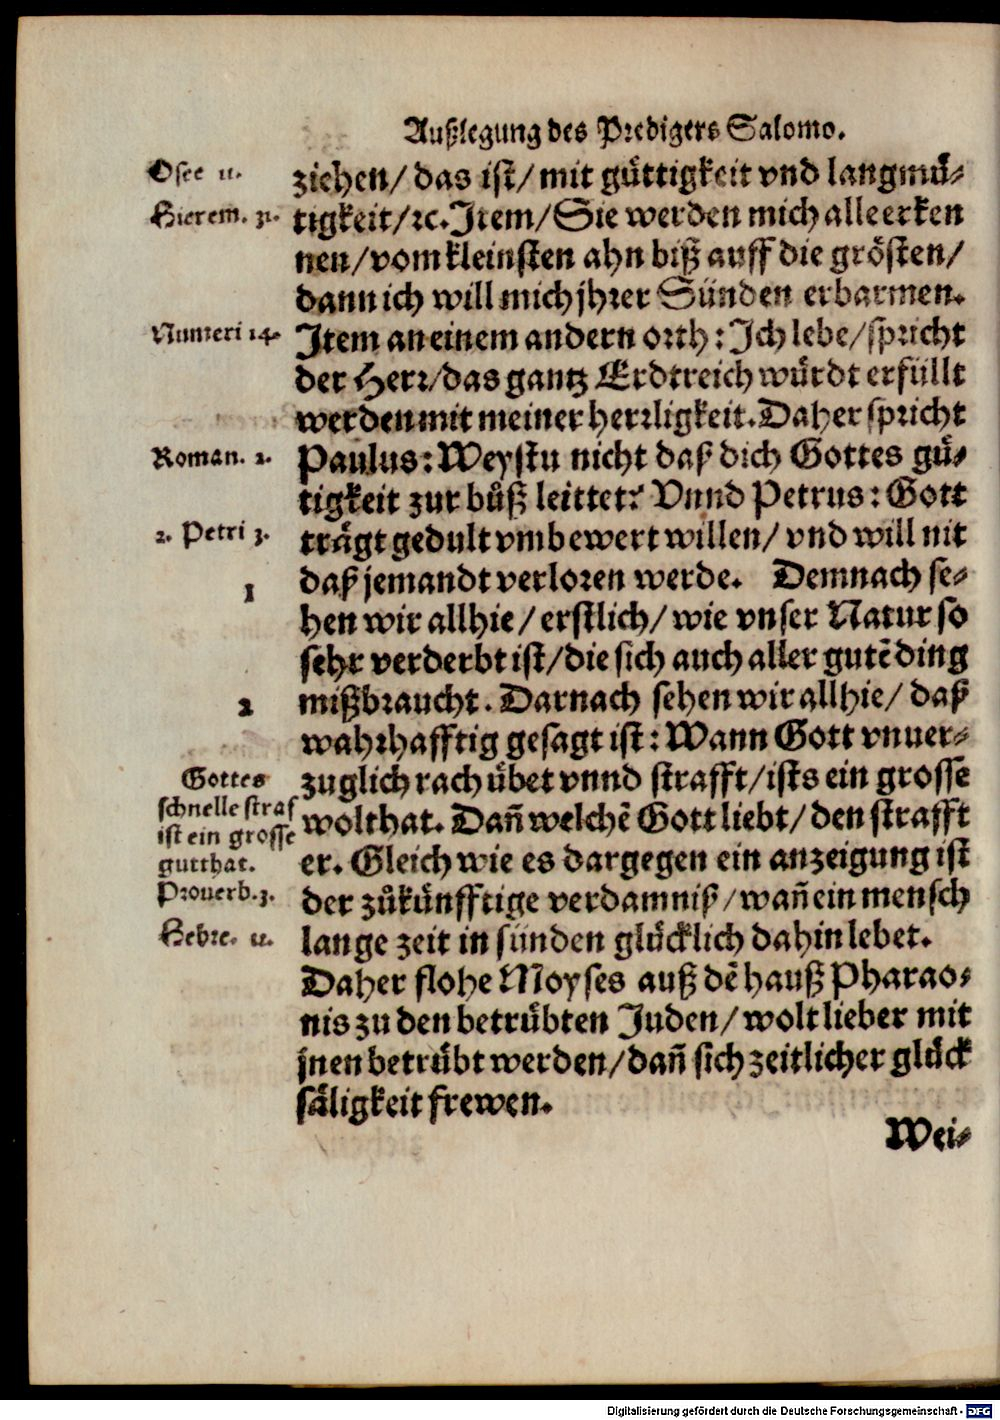 Außlegung des Predigers Salomo.
Osee 11.
ziehen/ das ist/ mit güttigkeit vnd langmü-
Hierem. 31.
tigkeit/ ꝛc. Item/ Sie werden mich alle erken
nen/ vom kleinsten ahn biß auff die grösten/
dann ich will mich jhrer Sünden erbarmen.
Numeri 14.
Item an einem andern orth: Ich lebe/ spricht
der Herr/ das gantz Erdtreich würdt erfüllt
werden mit meiner herrligkeit. Daher spricht
Roman. 2.
Paulus: Weystu nicht daß dich Gottes gü-
tigkeit zur bůß leittet? Vnnd Petrus: Gott
2. Petri 3.
trägt gedult vmb ewert willen/ vnd will nit
1
daß jemandt verloren werde. Demnach se-
hen wir allhie/ erstlich/ wie vnser Natur so
sehr verderbt ist/ die sich auch aller gutē ding
2
mißbraucht. Darnach sehen wir allhie/ daß
wahrhafftig gesagt ist: Wann Gott vnuer-
Gottes
schnelle straf
ist ein grosse
gutthat.
zuglich rach übet vnnd strafft/ ists ein grosse
wolthat. Dañ welchē Gott liebt/ den strafft
er. Gleich wie es dargegen ein anzeigung ist
Prouerb. 3.
der zůkünfftige verdamniß/ wañ ein mensch
Hebre. 11.
lange zeit in sünden glücklich dahin lebet.
Daher flohe Moyses auß dē hauß Pharao-
nis zu den betrübten Juden/ wolt lieber mit
jnen betrübt werden/ dañ sich zeitlicher glück
säligkeit frewen.
Wei-
Digitalisierung gefördert durch die Deutsche Forschungsgemeinschaft - DFG